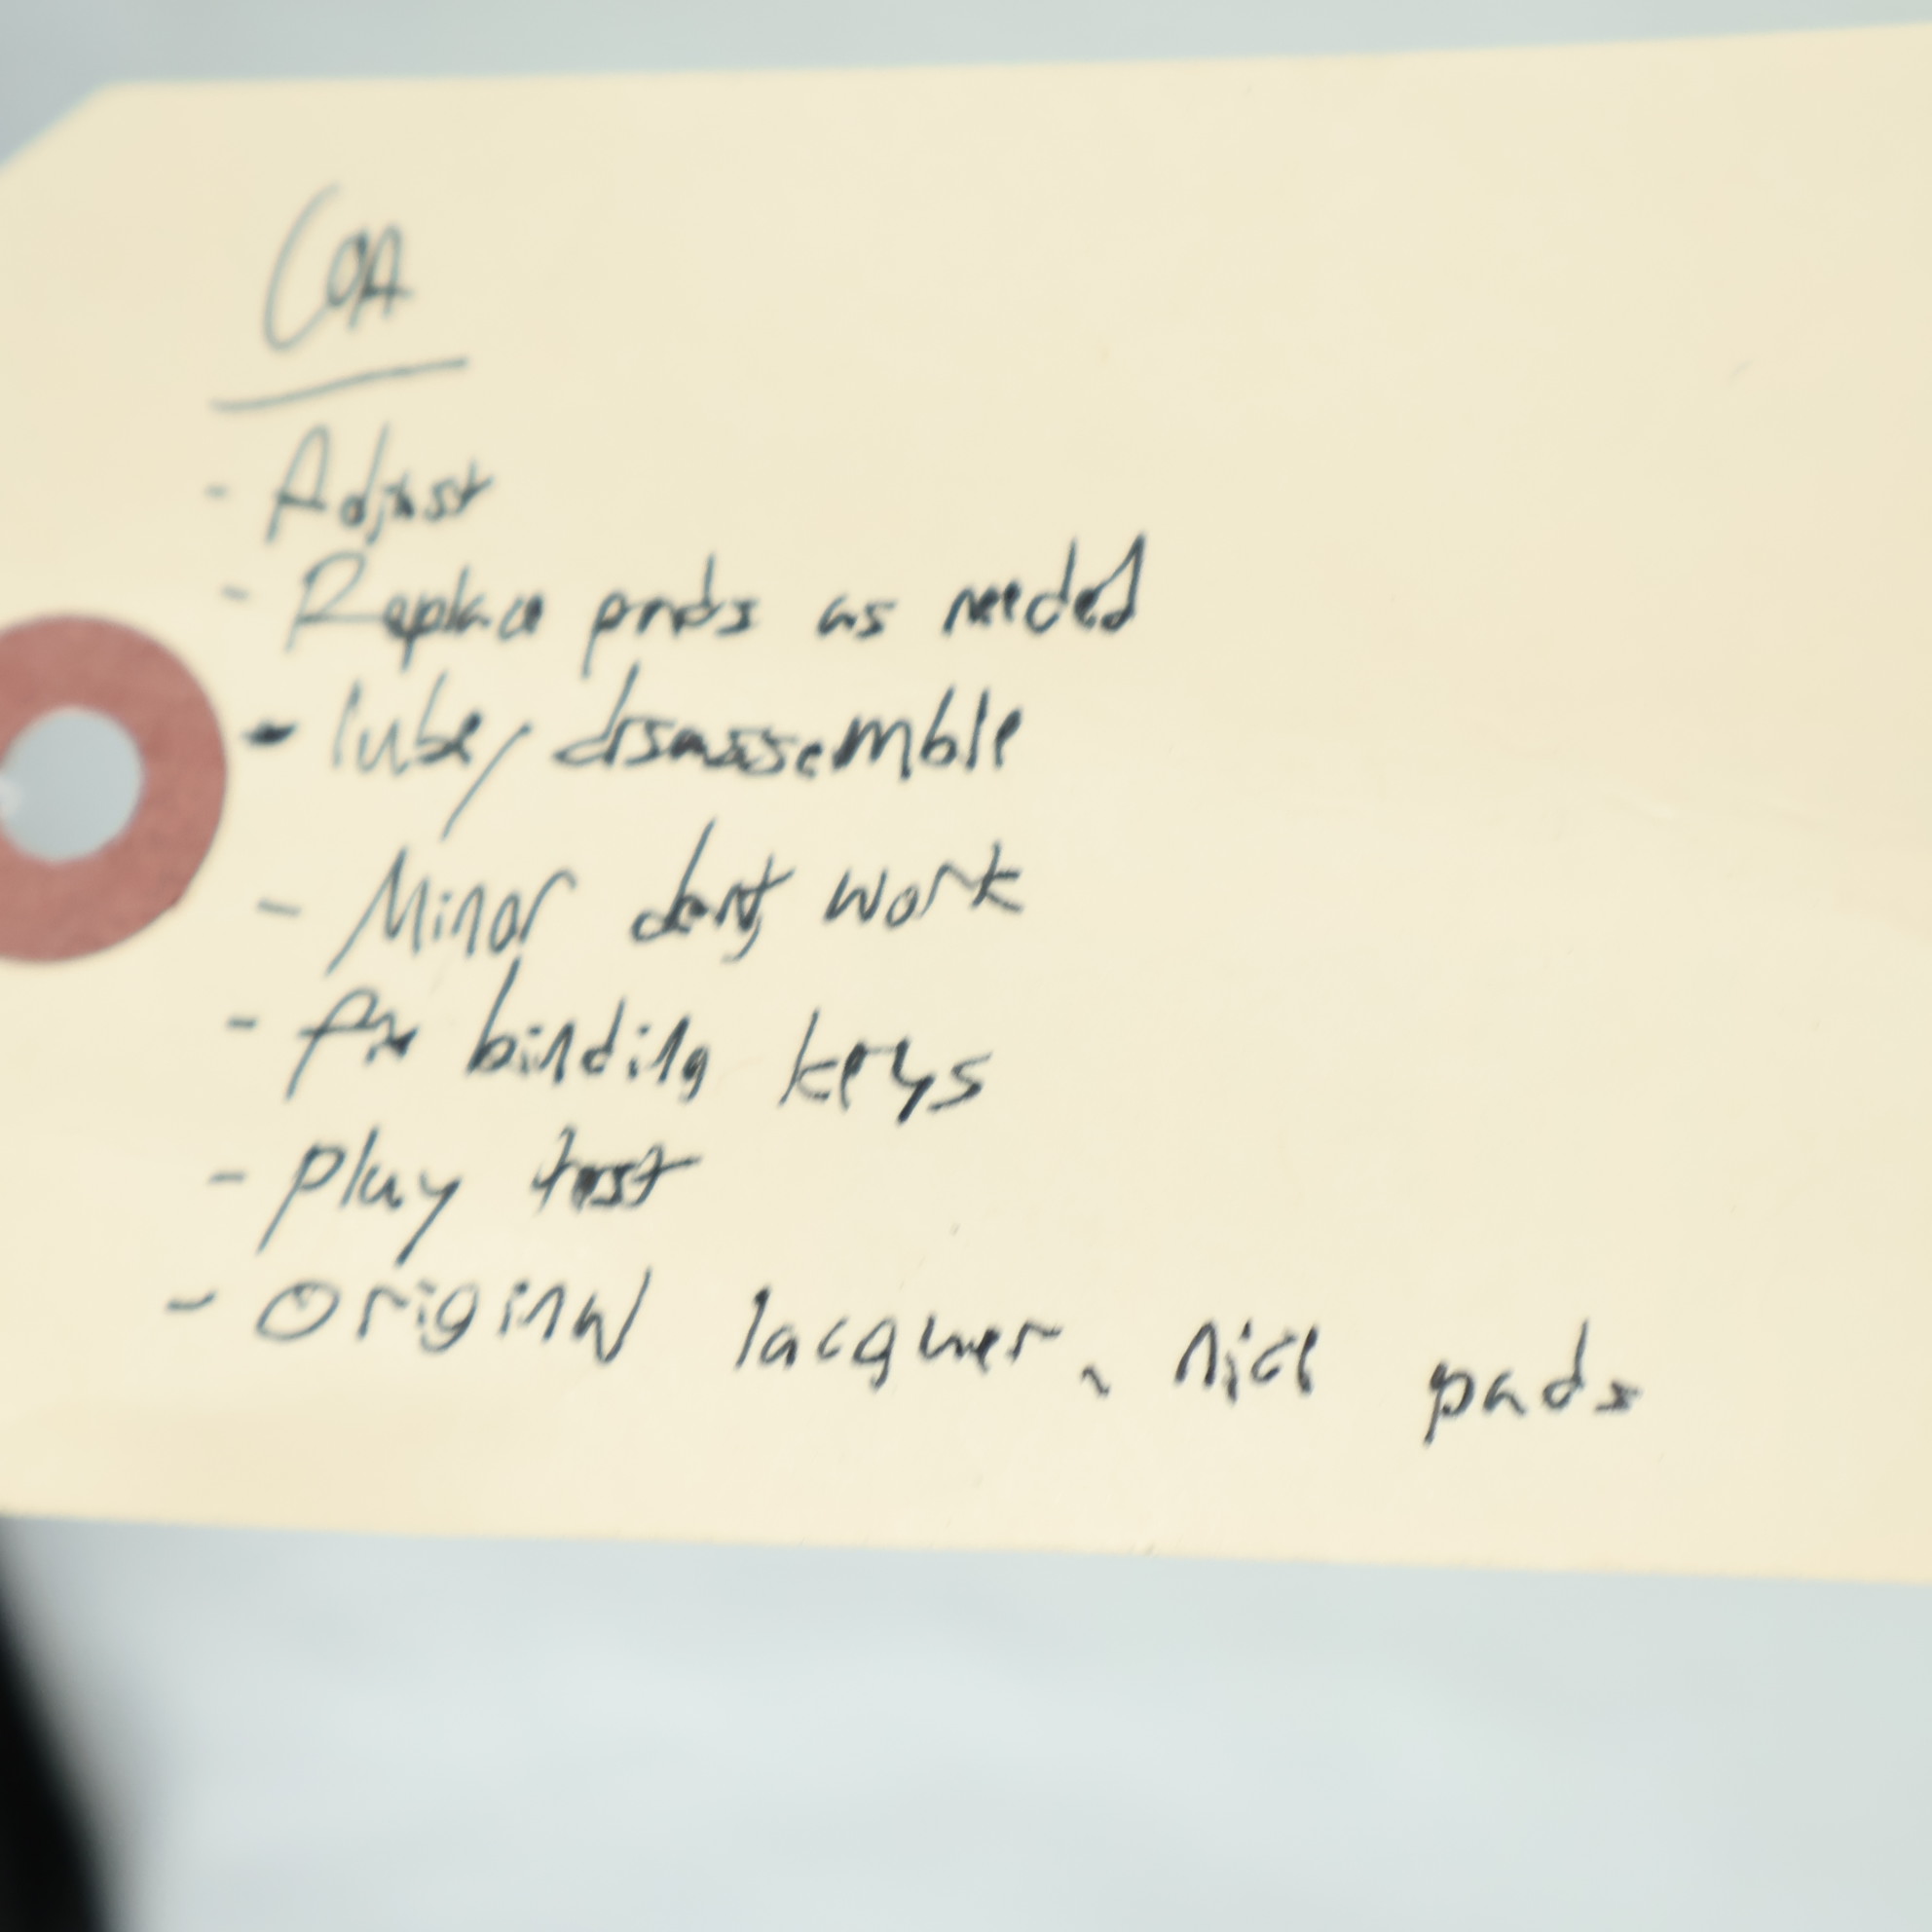 COA
- Adjust
- Replace pads as needed
- lube/disassemble
- Minor dent work
- fix binding keys
- play test
- Original lacquer, nice pads